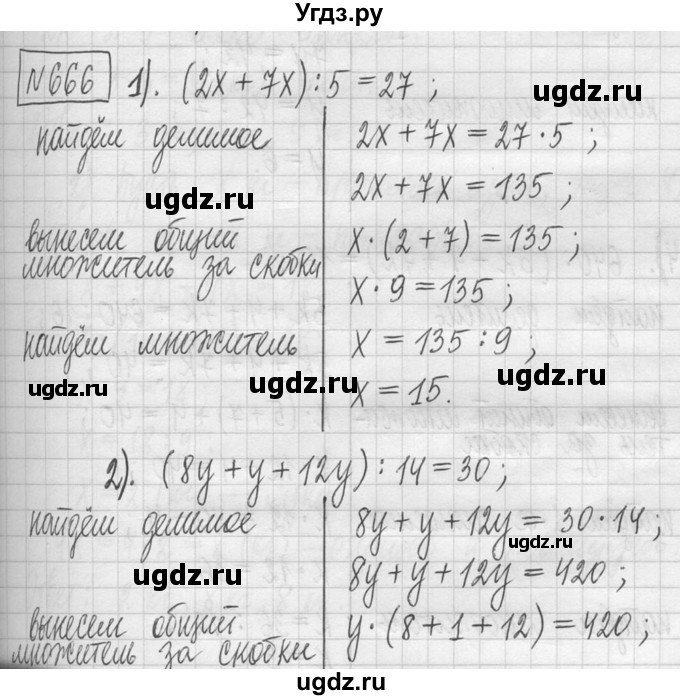 Угдз.ру
№666 1). (2x + 7x) : 5 = 27 ;
найдём делимое 2x + 7x = 27 · 5 ;
ugdz.ru 2x + 7x = 135 ;
вынесем общий
множитель за скобки x · (2 + 7) = 135 ;
ugdz.ru x · 9 = 135 ;
найдём множитель x = 135 : 9 ;
ugdz.ru ugdz.ru ugdz.ru
x = 15.
2). (8y + y + 12y) : 14 = 30 ;
найдём делимое 8y + y + 12y = 30 · 14 ;
ugdz.ru
ugdz.ru 8y + y + 12y = 420 ;
вынесем общий
множитель за скобки y · (8 + 1 + 12) = 420 ;
ugdz.ru